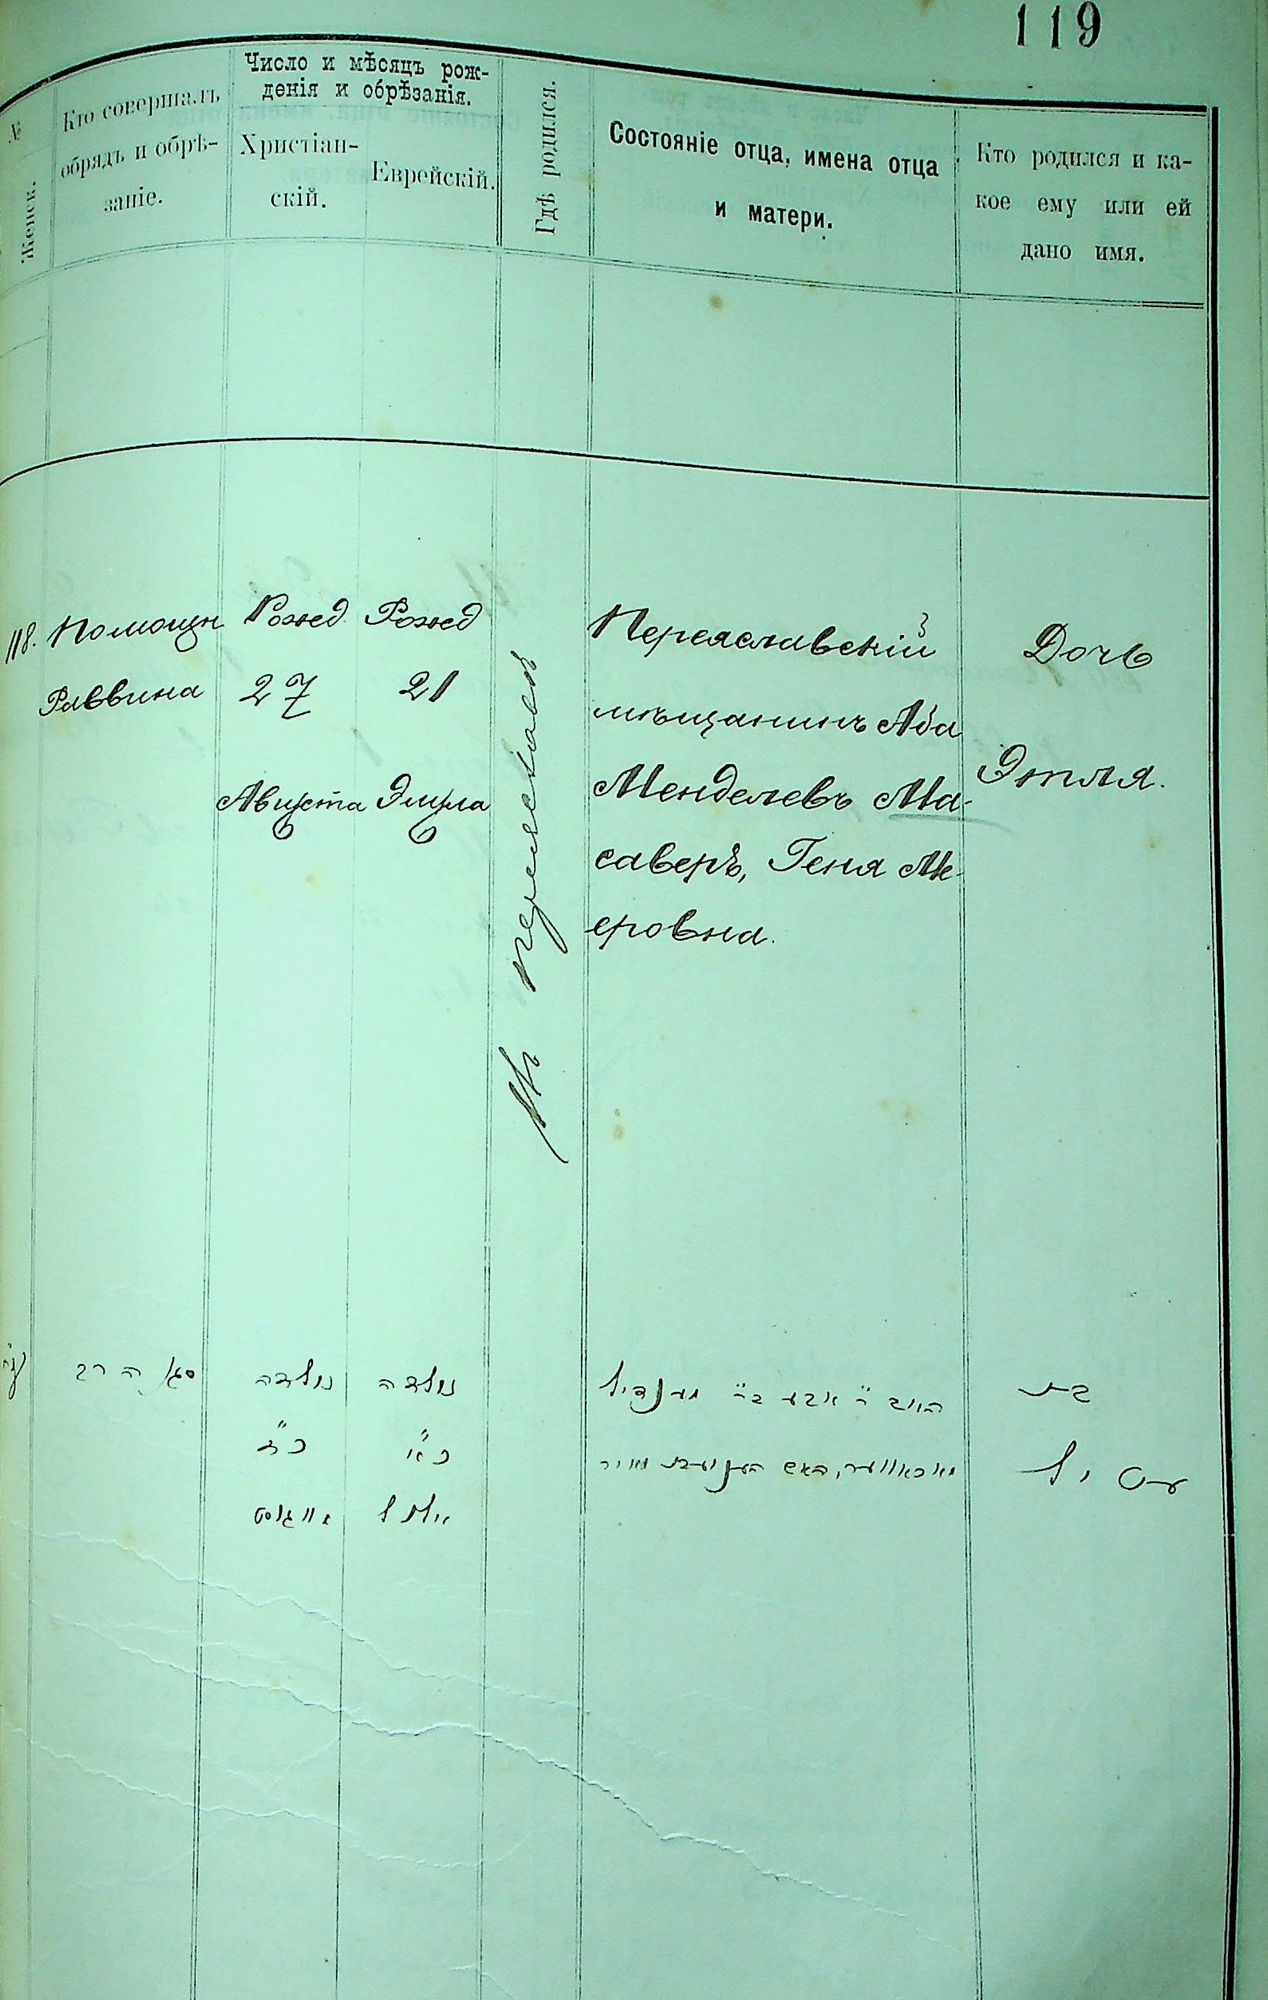 119
№
Женск.
Кто совершалъ
обрядъ и обрѣ-
заніе.
Число и мѣсяцъ рож-
денія и обрѣзанія.
Христіан-
скій.
Еврейскій.
Гдѣ родился.
Состояніе отца, имена отца
и матери.
Кто родился и ка-
кое ему или ей
дано имя.
118.
Помощн
Раввина
Рожд
27
Августа
Рожд
21
Элула
Въ Переяславѣ
Переяславскій
мѣщанинъ Аба
Менделевъ Ма-
саверъ, Геня Ме-
еровна.
Дочь
Этля.
סגן הרב
נולדה
כ״ז
אויגוסט
נולדה
כ״א
אלול
מענדיל
בת
עטיל